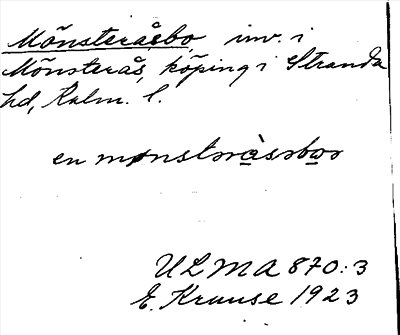 Mönsteråsbo, inv. i
Mönsterås, köping i Stranda
hd, Kalm. l.
en mønstəràsəboə
ULMA 870:3
E. Kruuse 1923